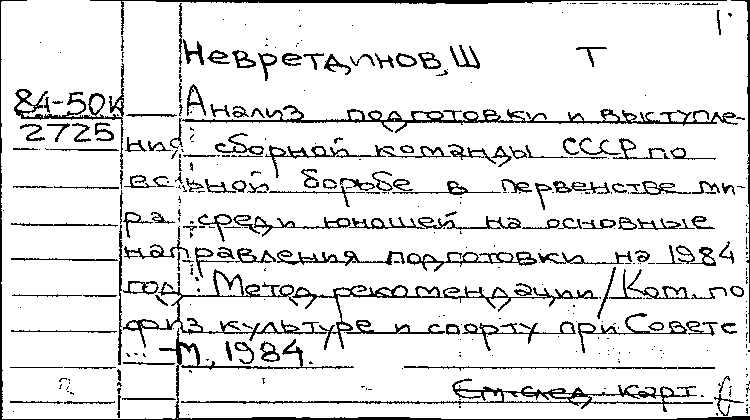 Невретдинов, Ш Т
84-50к
2725
Анализ подготовки и выступле-
ния сборной команды СССР по
вольной борьбе в первенстве ми-
ра среди юношей на основные
направления подготовки на 1984
год: Метод. рекомендации/Ком. по
физ. культуре и спорту при Совете
... -М., 1984.
См. след. карт.